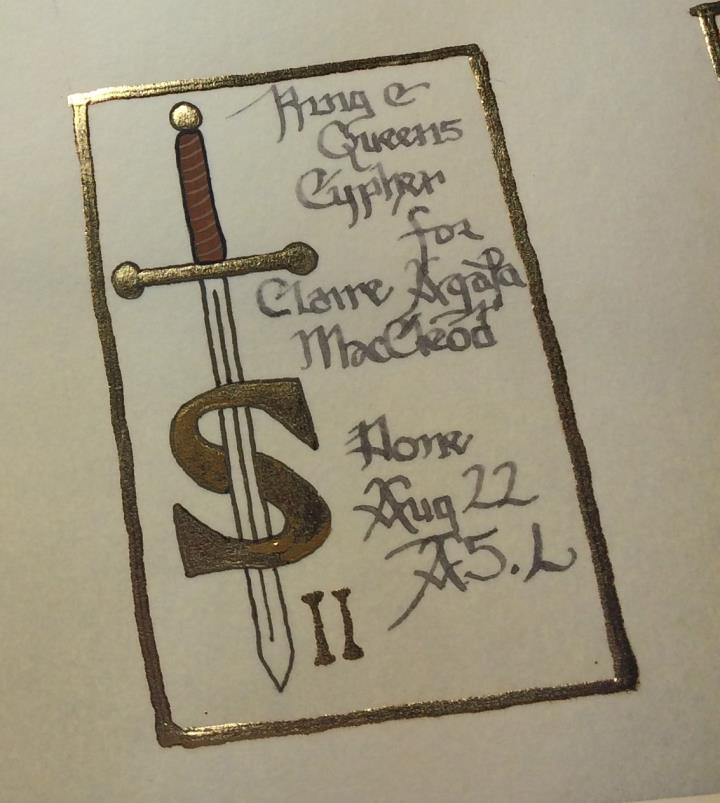 King &
Queens
Cypher
for
Claire Agata
MacCleod
S
II
None
Aug 22
A5.L